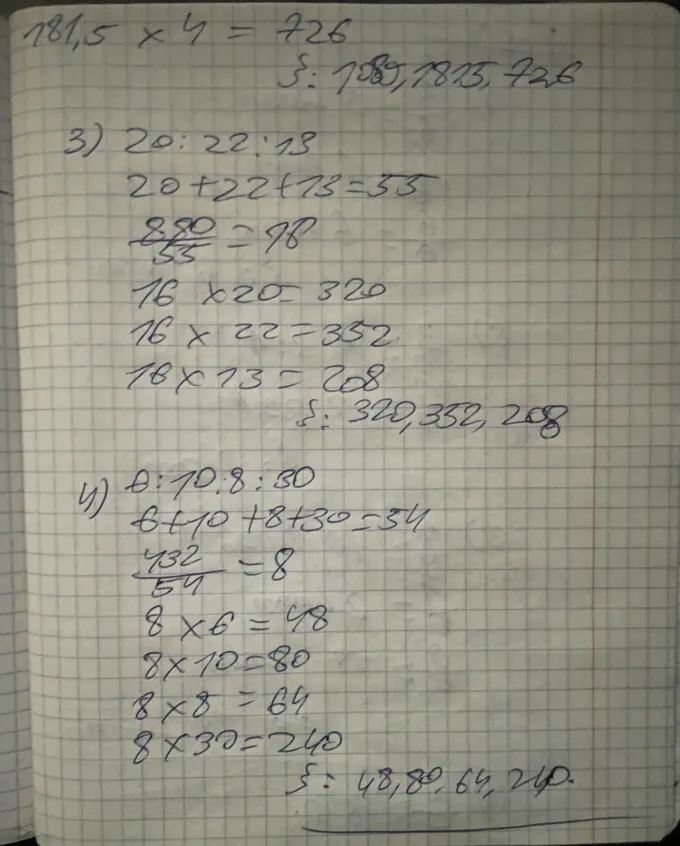 181,5 × 4 = 726
}: 1089, 1815, 726
3) 20 : 22 : 13
20 + 22 + 13 = 55
880/55 = 16
16 × 20 = 320
16 × 22 = 352
16 × 13 = 208
}: 320, 352, 208
4) 6 : 10 : 8 : 30
6 + 10 + 8 + 30 = 54
432/54 = 8
8 × 6 = 48
8 × 10 = 80
8 × 8 = 64
8 × 30 = 240
}: 48, 80, 64, 240.